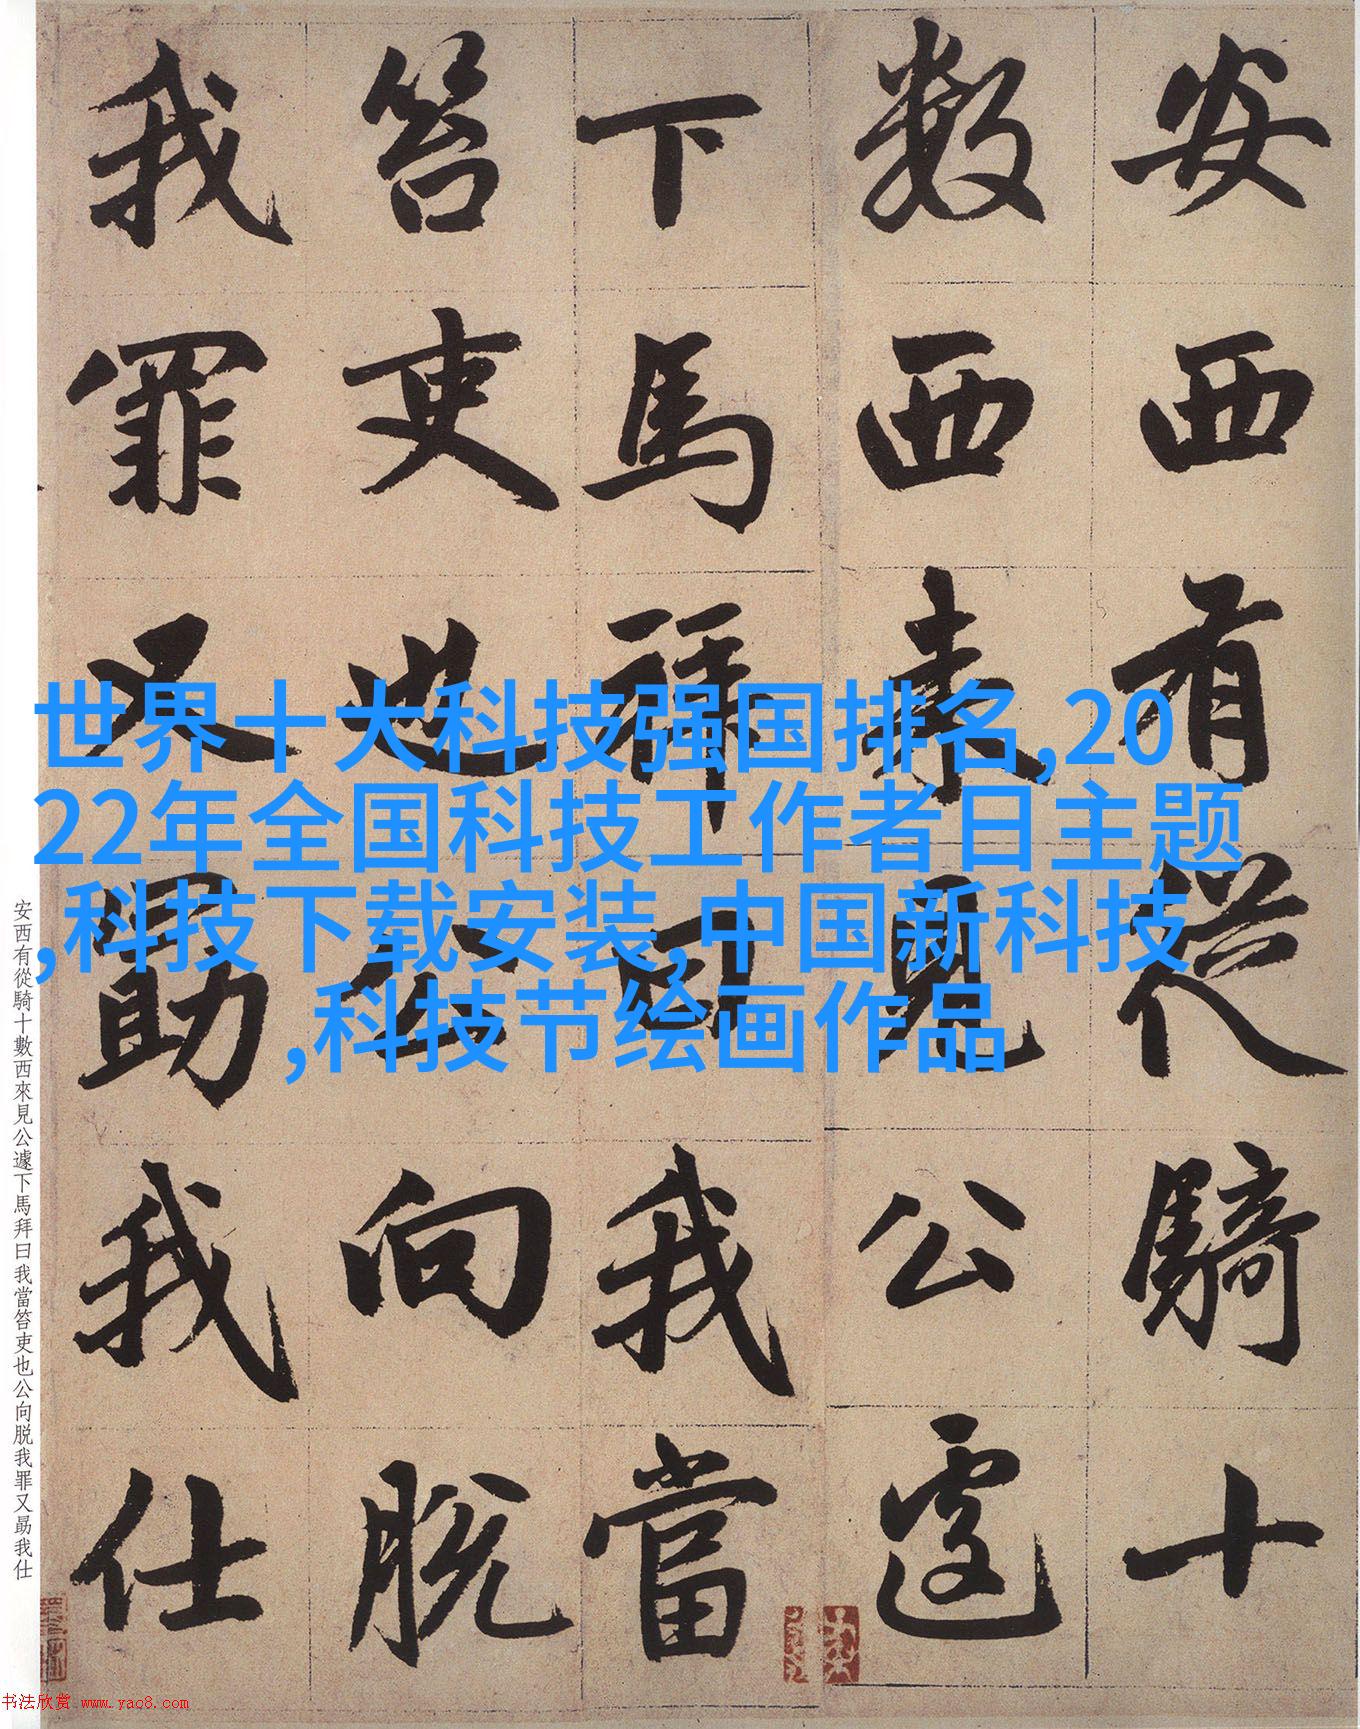 安西有從騎十
數西來見公遽
下馬拜曰我當
笞吏也公向脱
我罪又勗我仕
世界十大科技强国排名,20
22年全国科技工作者日主题
,科技下载安装,中国新科技
,科技节绘画作品
安西有從騎十數西來見公遽下馬拜曰我當笞吏也公向脱我罪又勗我仕
书法欣赏 www.yac8.com